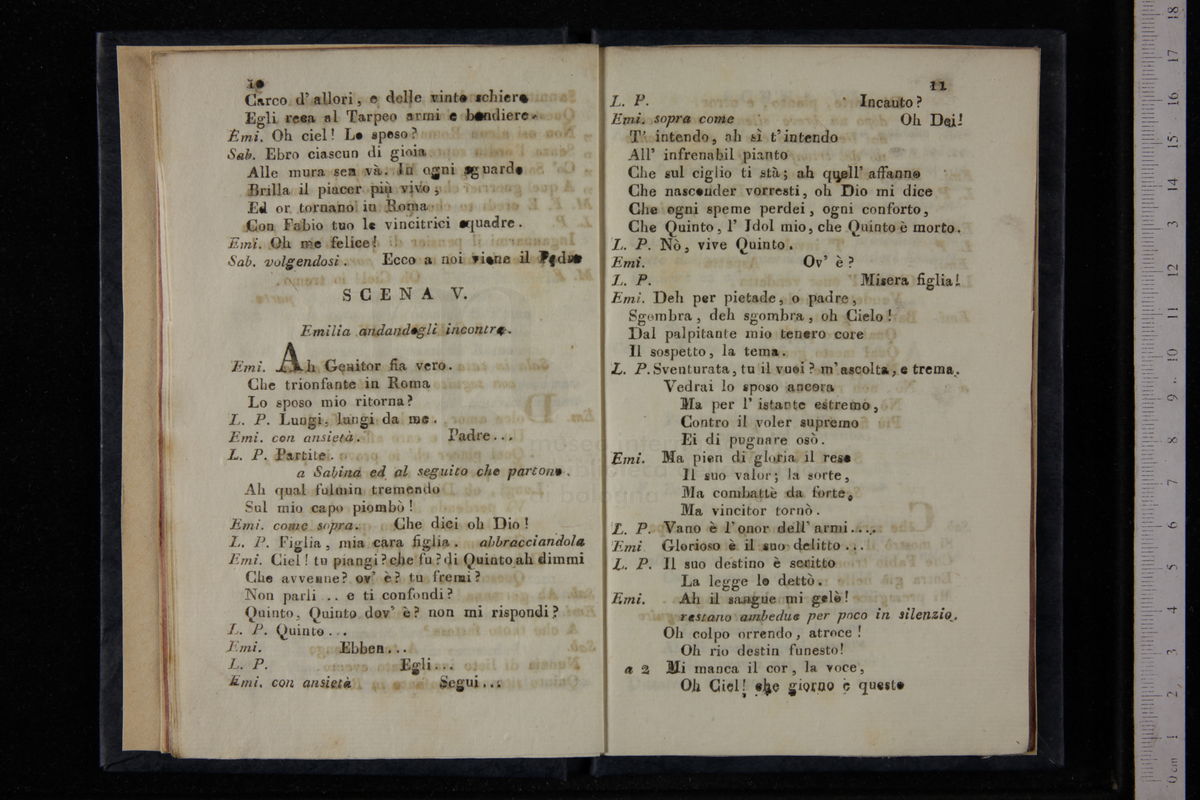 10
Carco d' allori, e delle vinte schiere
Egli reca al Tarpeo armi e bandiere.
Emi. Oh ciel! Lo sposo?
Sab. Ebro ciascun di gioia
Alle mura sen và. In ogni sguardo
Brilla il piacer più vivo,
Ed or tornano in Roma
Con Fabio tuo le vincitrici squadre.
Emi. Oh me felice!
Sab. volgendosi. Ecco a noi viene il Padre
SCENA V.
Emilia andandogli incontro.
Emi. Ah Genitor fia vero.
Che trionfante in Roma
Lo sposo mio ritorna?
L. P. Lungi, lungi da me.
Emi. con ansietà. Padre...
L. P. Partite.
a Sabina ed al seguito che partono.
Ah qual fulmin tremendo
Sul mio capo piombò!
Emi. come sopra. Che dici oh Dio!
L. P. Figlia, mia cara figlia. abbracciandola
Emi. Ciel! tu piangi? che fu? di Quinto ah dimmi
Che avvenne? ov' è? tu fremi?
Non parli .. e ti confondi?
Quinto, Quinto dov' è? non mi rispondi?
L. P. Quinto...
Emi. Ebben...
L. P. Egli...
Emi. con ansietà Segui...
11
L. P. Incauto?
Emi. sopra come Oh Dei!
T' intendo, ah sì t'intendo
All' infrenabil pianto
Che sul ciglio ti stà; ah quell' affanno
Che nasconder vorresti, oh Dio mi dice
Che ogni speme perdei, ogni conforto,
Che Quinto, l' Idol mio, che Quinto è morto.
L. P. Nò, vive Quinto.
Emi. Ov' è?
L. P. Misera figlia!
Emi. Deh per pietade, o padre,
Sgombra, deh sgombra, oh Cielo!
Dal palpitante mio tenero core
Il sospetto, la tema.
L. P. Sventurata, tu il vuoi? m'ascolta, e trema.
Vedrai lo sposo ancora
Ma per l' istante estremo,
Contro il voler supremo
Ei di pugnare osò.
Emi. Ma pien di gloria il rese
Il suo valor; la sorte,
Ma combattè da forte,
Ma vincitor tornò.
L. P. Vano è l'onor dell' armi.....
Emi Glorioso è il suo delitto...
L. P. Il suo destino è scritto
La legge lo dettò.
Emi. Ah il sangue mi gelò!
restano ambedue per poco in silenzio.
Oh colpo orrendo, atroce!
Oh rio destin funesto!
a 2 Mi manca il cor, la voce,
Oh Ciel! che giorno è questo